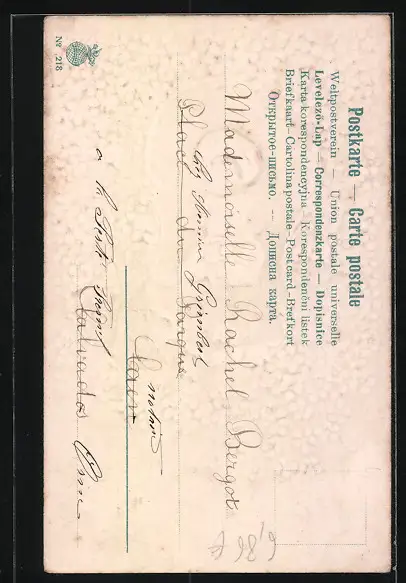 Postkarte — Carte postale
Weltpostverein — Union postale universelle
Levelező-Lap — Correspondenzkarte — Dopisnice
Karta korespondencyjna — Korespondenční listek
Briefkaart — Cartolina postale — Post card — Brefkort
Открытое-письмо. -- Дописна карта.
Mademoiselle Rachel Bergot
chez
notaire
Place du Parquet
Caen
Calvados
No 218